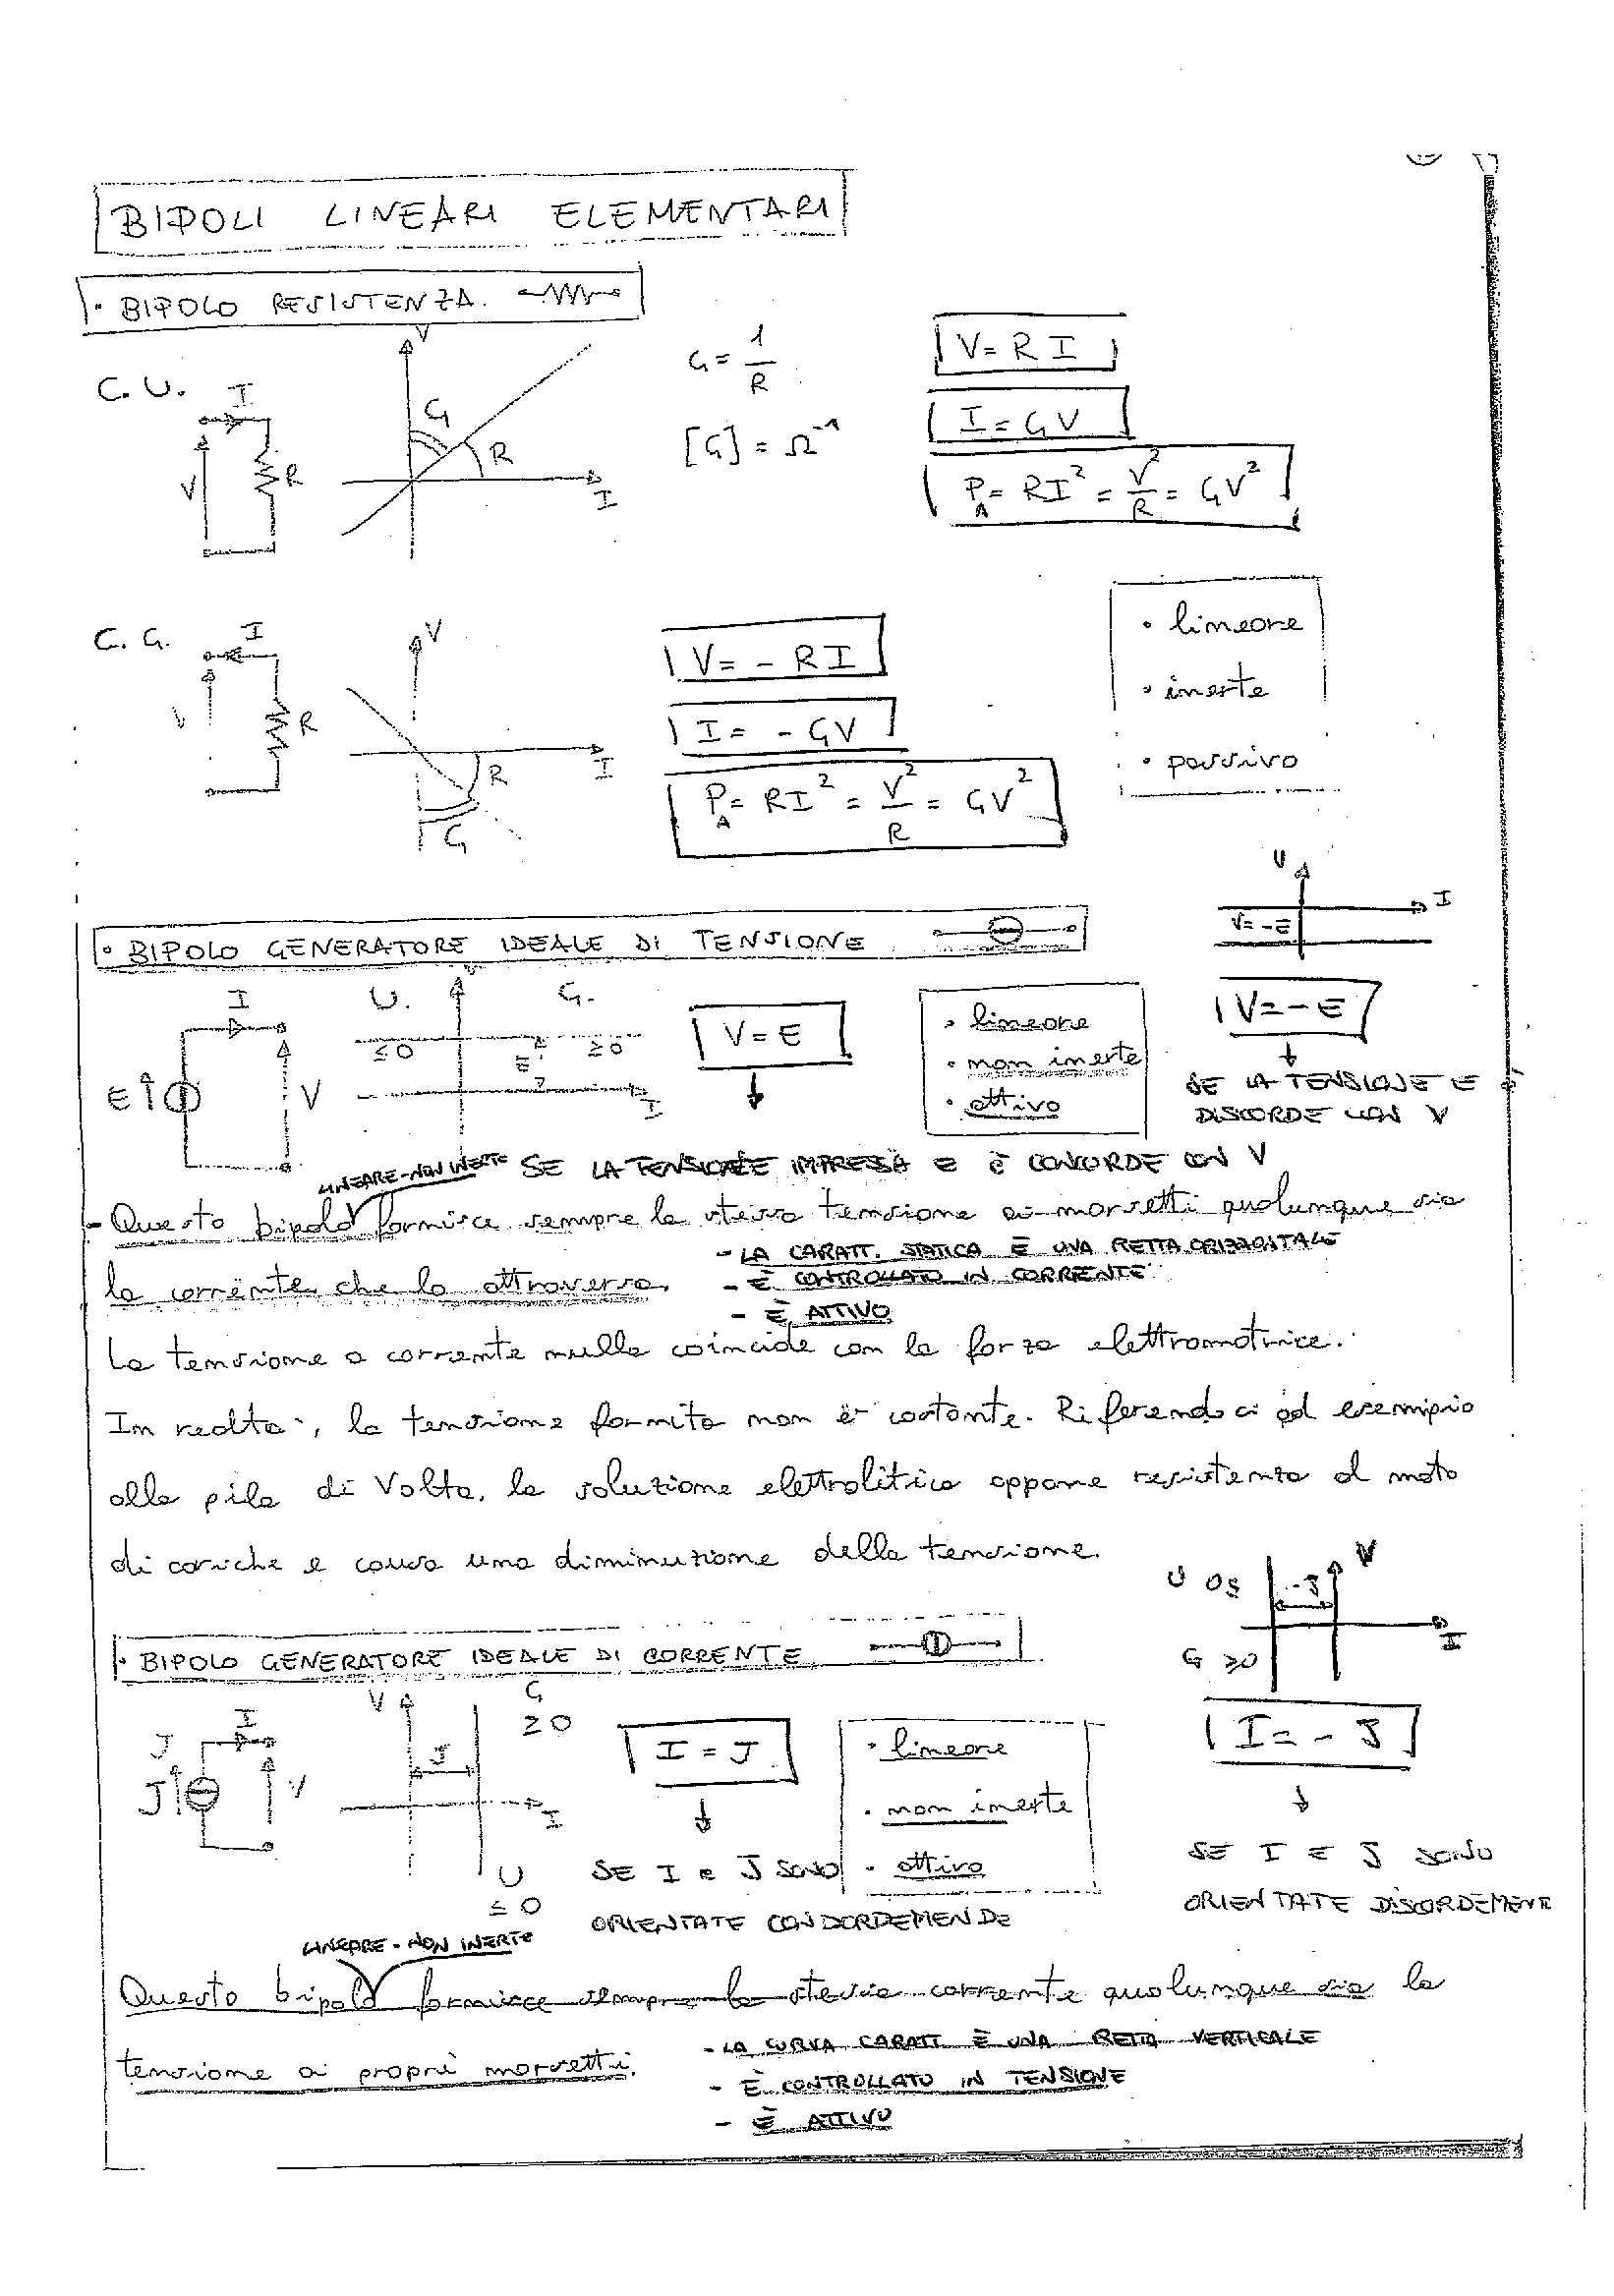 BIPOLI LINEARI ELEMENTARI
• BIPOLO RESISTENZA.
C.U.
I
V
R
V
G
R
I
G = 1/R
[G] = Ω⁻¹
V = R I
I = G V
P_A = RI² = V²/R = GV²
C.G.
I
V
R
V
I
R
G
V = - RI
I = - GV
P_A = RI² = V²/R = GV²
• lineare
• inerte
• passivo
• BIPOLO GENERATORE IDEALE DI TENSIONE
V
I
V = -E
I
E
V
U.
G.
≤ 0
≥ 0
E
I
V = E
• lineare
• non inerte
• attivo
V = - E
SE LA TENSIONE E È
DISCORDE CON V
LINEARE - NON INERTE
SE LA TENSIONE IMPRESSA E È CONCORDE CON V
- Questo bipolo fornisce sempre la stessa tensione ai morsetti qualunque sia
- LA CARATT. STATICA È UNA RETTA ORIZZONTALE
la corrente che lo attraversa.
- È CONTROLLATO IN CORRENTE
- È ATTIVO
La tensione a corrente nulla coincide con la forza elettromotrice.
In realtà, la tensione fornita non è costante. Riferendoci ad esempio
alla pila di Volta, la soluzione elettrolitica oppone resistenza al moto
di cariche e causa una diminuzione della tensione.
• BIPOLO GENERATORE IDEALE DI CORRENTE
U 0≤
-J
V
I
G ≥0
J
I
J
V
V
J
I
G
≥ 0
U
≤ 0
I = J
• lineare
• non inerte
• attivo
I = - J
SE I e J SONO
ORIENTATE CONDORDEMENDE
SE I E J SONO
ORIENTATE DISCORDEMENE
LINEARE - NON INERTE
Questo bipolo fornisce sempre la stessa corrente qualunque sia la
tensione ai propri morsetti.
- LA CURVA CARATT È UNA RETTA VERTICALE
- È CONTROLLATO IN TENSIONE
- È ATTIVO